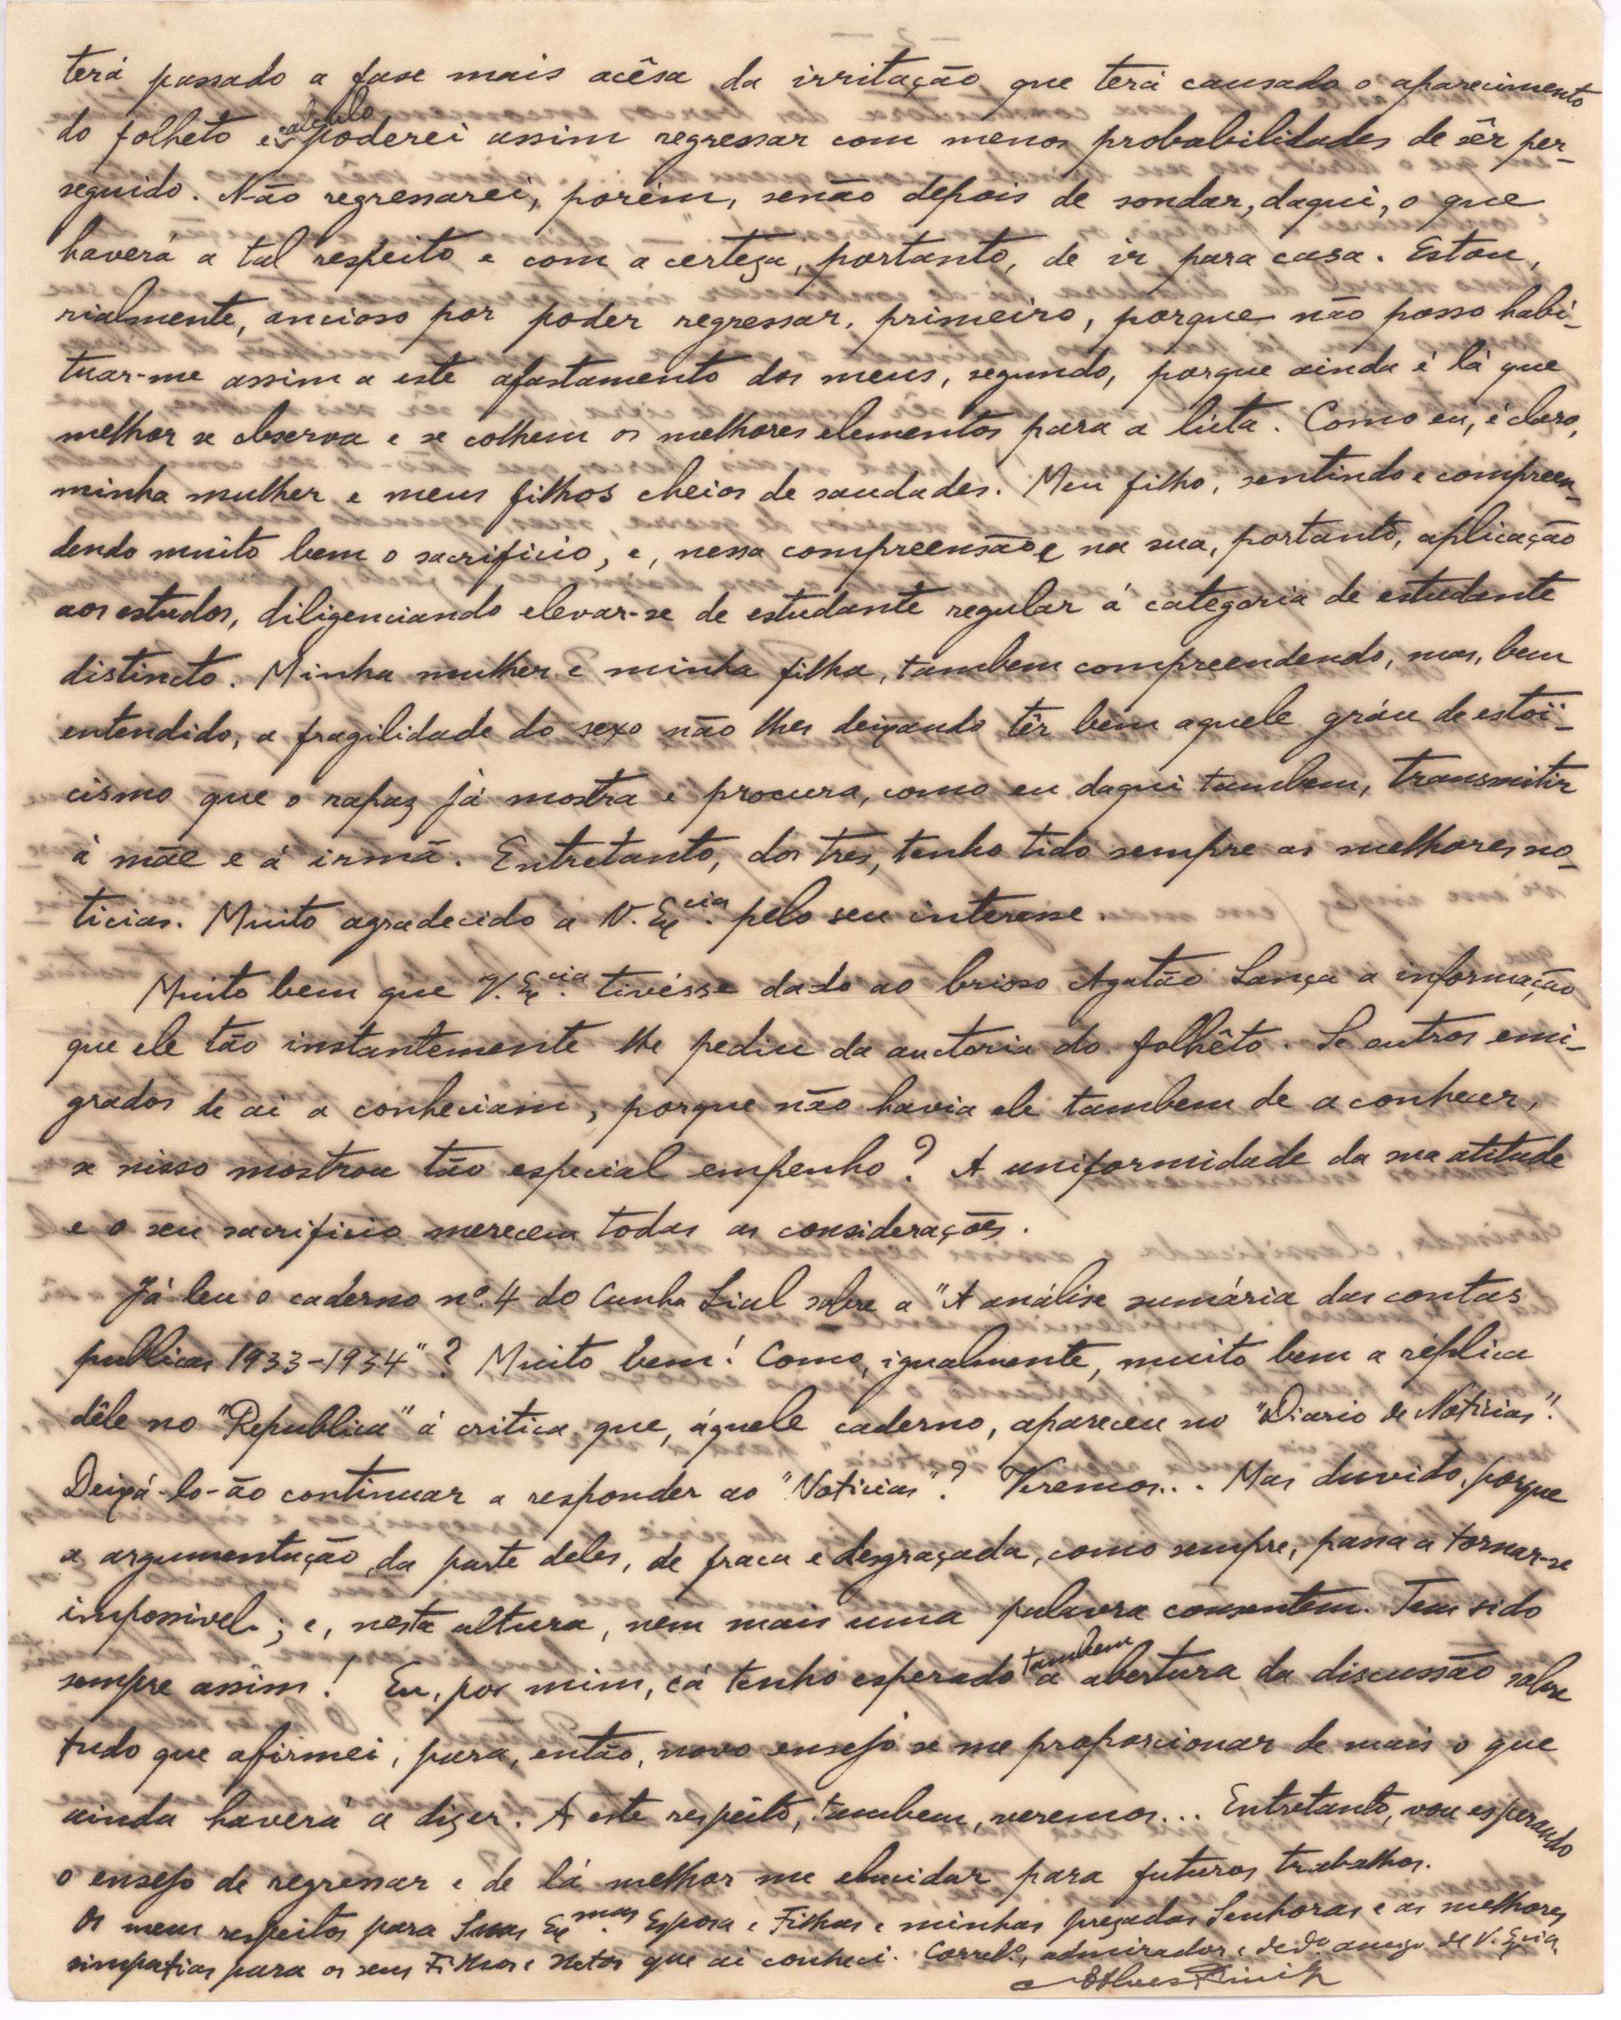 terá passado a fase mais acêsa da irritação que terá causado o aparecimento
do folheto e calculo poderei assim regressar com menos probabilidades de sêr per-
seguido. Não regressarei, porém, senão depois de sondar, daqui, o que
haverá a tal respeito e com a certeza, portanto, de ir para casa. Estou,
rialmente, ancioso por poder regressar, primeiro, porque não posso habi-
tuar-me assim a este afastamento dos meus, segundo, porque ainda é lá que
melhor se observa e se colhem os melhores elementos para a luta. Como eu, é claro,
minha mulher e meus filhos cheios de saudades. Meu filho, sentindo e compreen-
dendo muito bem o sacrificio, e, nessa compreensão e na sua, portanto, aplicação
aos estudos, diligenciando elevar-se de estudante regular á categoria de estudante
distincto. Minha mulher e minha filha, tambem compreendendo, mas, bem
entendido, a fragilidade do sexo não lhes deixando têr bem aquele gráu de estoï-
cismo que o rapaz já mostra e procura, como eu daqui tambem, transmitir
á mãe e á irmã. Entretanto, dos tres, tenho tido sempre as melhores no-
ticias. Muito agradecido a V. Excia. pelo seu interesse.
Muito bem que V. Excia. tivésse dado ao brioso Agatão Lança a informação
que ele tão instantemente lhe pediu da auctoria do folhêto. Se outros emi-
grados de aí a conheciam, porque não havia ele tambem de a conhecer,
se nisso mostrou tão especial empenho? A uniformidade da sua atitude
e o seu sacrificio merecem todas as considerações.
Já leu o caderno nº. 4 do Cunha Lial sobre a "A análise sumária das contas
publicas 1933-1934"? Muito bem! Como, igualmente, muito bem a réplica
dêle no "Republica" á critica que, áquele caderno, apareceu no "Diario de Noticias".
Deixá-lo-ão continuar a responder ao "Noticias"? Veremos... Mas duvido, porque
a argumentação da parte deles, de fraca e desgraçada, como sempre, passa a tornar-se
impossivel; e, nesta altura, nem mais uma palavra consentem. Tem sido
sempre assim! Eu, por mim, cá tenho esperado tambem a abertura da discussão sobre
tudo que afirmei, para, então, novo ensejo se me proporcionar de mais o que
ainda haverá a dizer. A este respeito, tambem, veremos... Entretanto, vou esperando
o ensejo de regressar e de lá melhor me elucidar para futuros trabalhos.
Os meus respeitos para Suas Exmas. Esposa e Filhas e minhas prezadas Senhoras e as melhores
simpatias para os seus Filhos e Netos que aí conheci. Correlº., admirador e dedº. amigo de V. Excia.